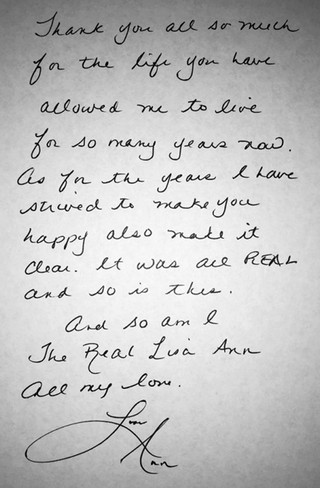 Thank you all so much
for the life you have
allowed me to live
for so many years now.
As for the years I have
strived to make you
happy also make it
clear. It was all REAL
and so is this.
And so am I
The Real Lisa Ann
All my love.
Lisa
Ann